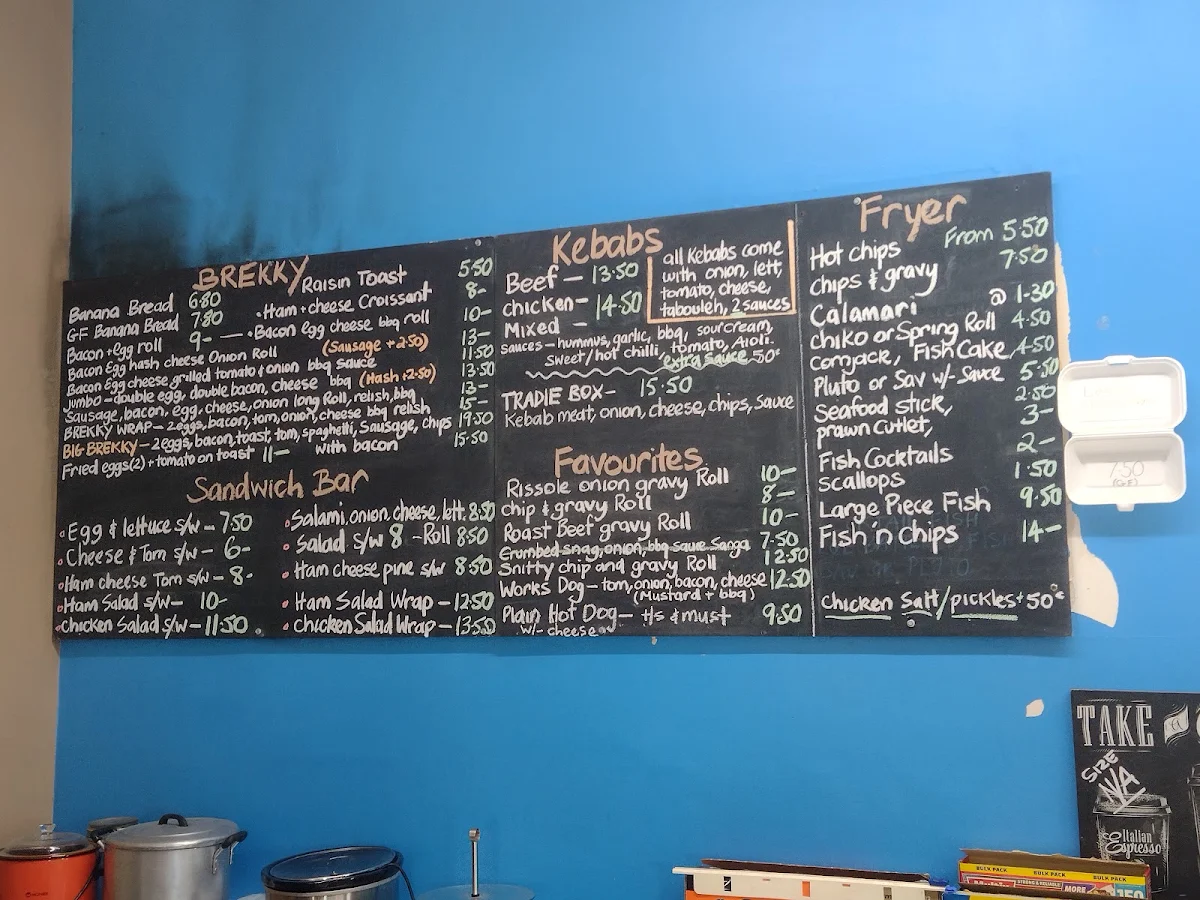 BREKKY
Raisin Toast 5.50
Banana Bread 6.80
• Ham + cheese Croissant 8-
G.F Banana Bread 7.80
• Bacon egg cheese bbq roll 10-
Bacon + egg roll 9-
(Sausage + 2.50)
Bacon Egg hash cheese Onion Roll 13-
Bacon Egg cheese grilled tomato & onion bbq sauce 11.50
Jumbo - double egg, double bacon, cheese bbq (Hash + 2.50) 13.50
Sausage, bacon, egg, cheese, onion long Roll, relish, bbq 13-
BREKKY WRAP - 2 eggs, bacon, tom, onion, cheese bbq relish 15-
BIG BREKKY - 2 eggs, bacon, toast, tom, spaghetti, Sausage, chips 19.50
Fried eggs (2) + tomato on toast 11- with bacon 15.50
Sandwich Bar
• Egg & lettuce s/w - 7.50
• Cheese & Tom s/w - 6-
• Ham cheese Tom s/w - 8-
• Ham Salad s/w - 10-
• Chicken Salad s/w - 11.50
• Salami, onion, cheese, lett. 8.50
• Salad s/w 8 - Roll 8.50
• Ham cheese pine s/w 8.50
• Ham Salad Wrap - 12.50
• Chicken Salad Wrap - 13.50
Kebabs
Beef - 13.50
chicken - 14.50
Mixed -
all Kebabs come
with onion, lett,
tomato, cheese,
tabouleh, 2 sauces
sauces - hummus, garlic, bbq, sour cream,
sweet/hot chilli, tomato, Aioli.
extra sauce 50c
TRADIE BOX - 15.50
Kebab meat, onion, cheese, chips, sauce
Favourites
Rissole onion gravy Roll 10-
chip & gravy Roll 8-
Roast Beef gravy Roll 10-
Crumbed snag, onion, bbq sauce Sanga 7.50
Snitty chip and gravy Roll 12.50
Works Dog - tom, onion, bacon, cheese 12.50
(Mustard + bbq)
Plain Hot Dog - t/s & must 9.50
w/- cheese
Fryer
Hot chips From 5.50
chips & gravy 7.50
Calamari @ 1.30
chiko or Spring Roll 4.50
cornjack, Fish Cake 4.50
Pluto or Sav w/- Sauce 5.50
Seafood stick, 2.50
prawn cutlet, 3-
Fish Cocktails 2-
scallops 1.50
Large Piece Fish 9.50
Fish 'n chips 14-
Chicken Salt/pickles + 50c
7.50
(G.F)
TAKE
SIZE
N/A
Italian
Espresso
BULK PACK BULK PACK BULK PACK
STRONG & RELIABLE
MORE
150